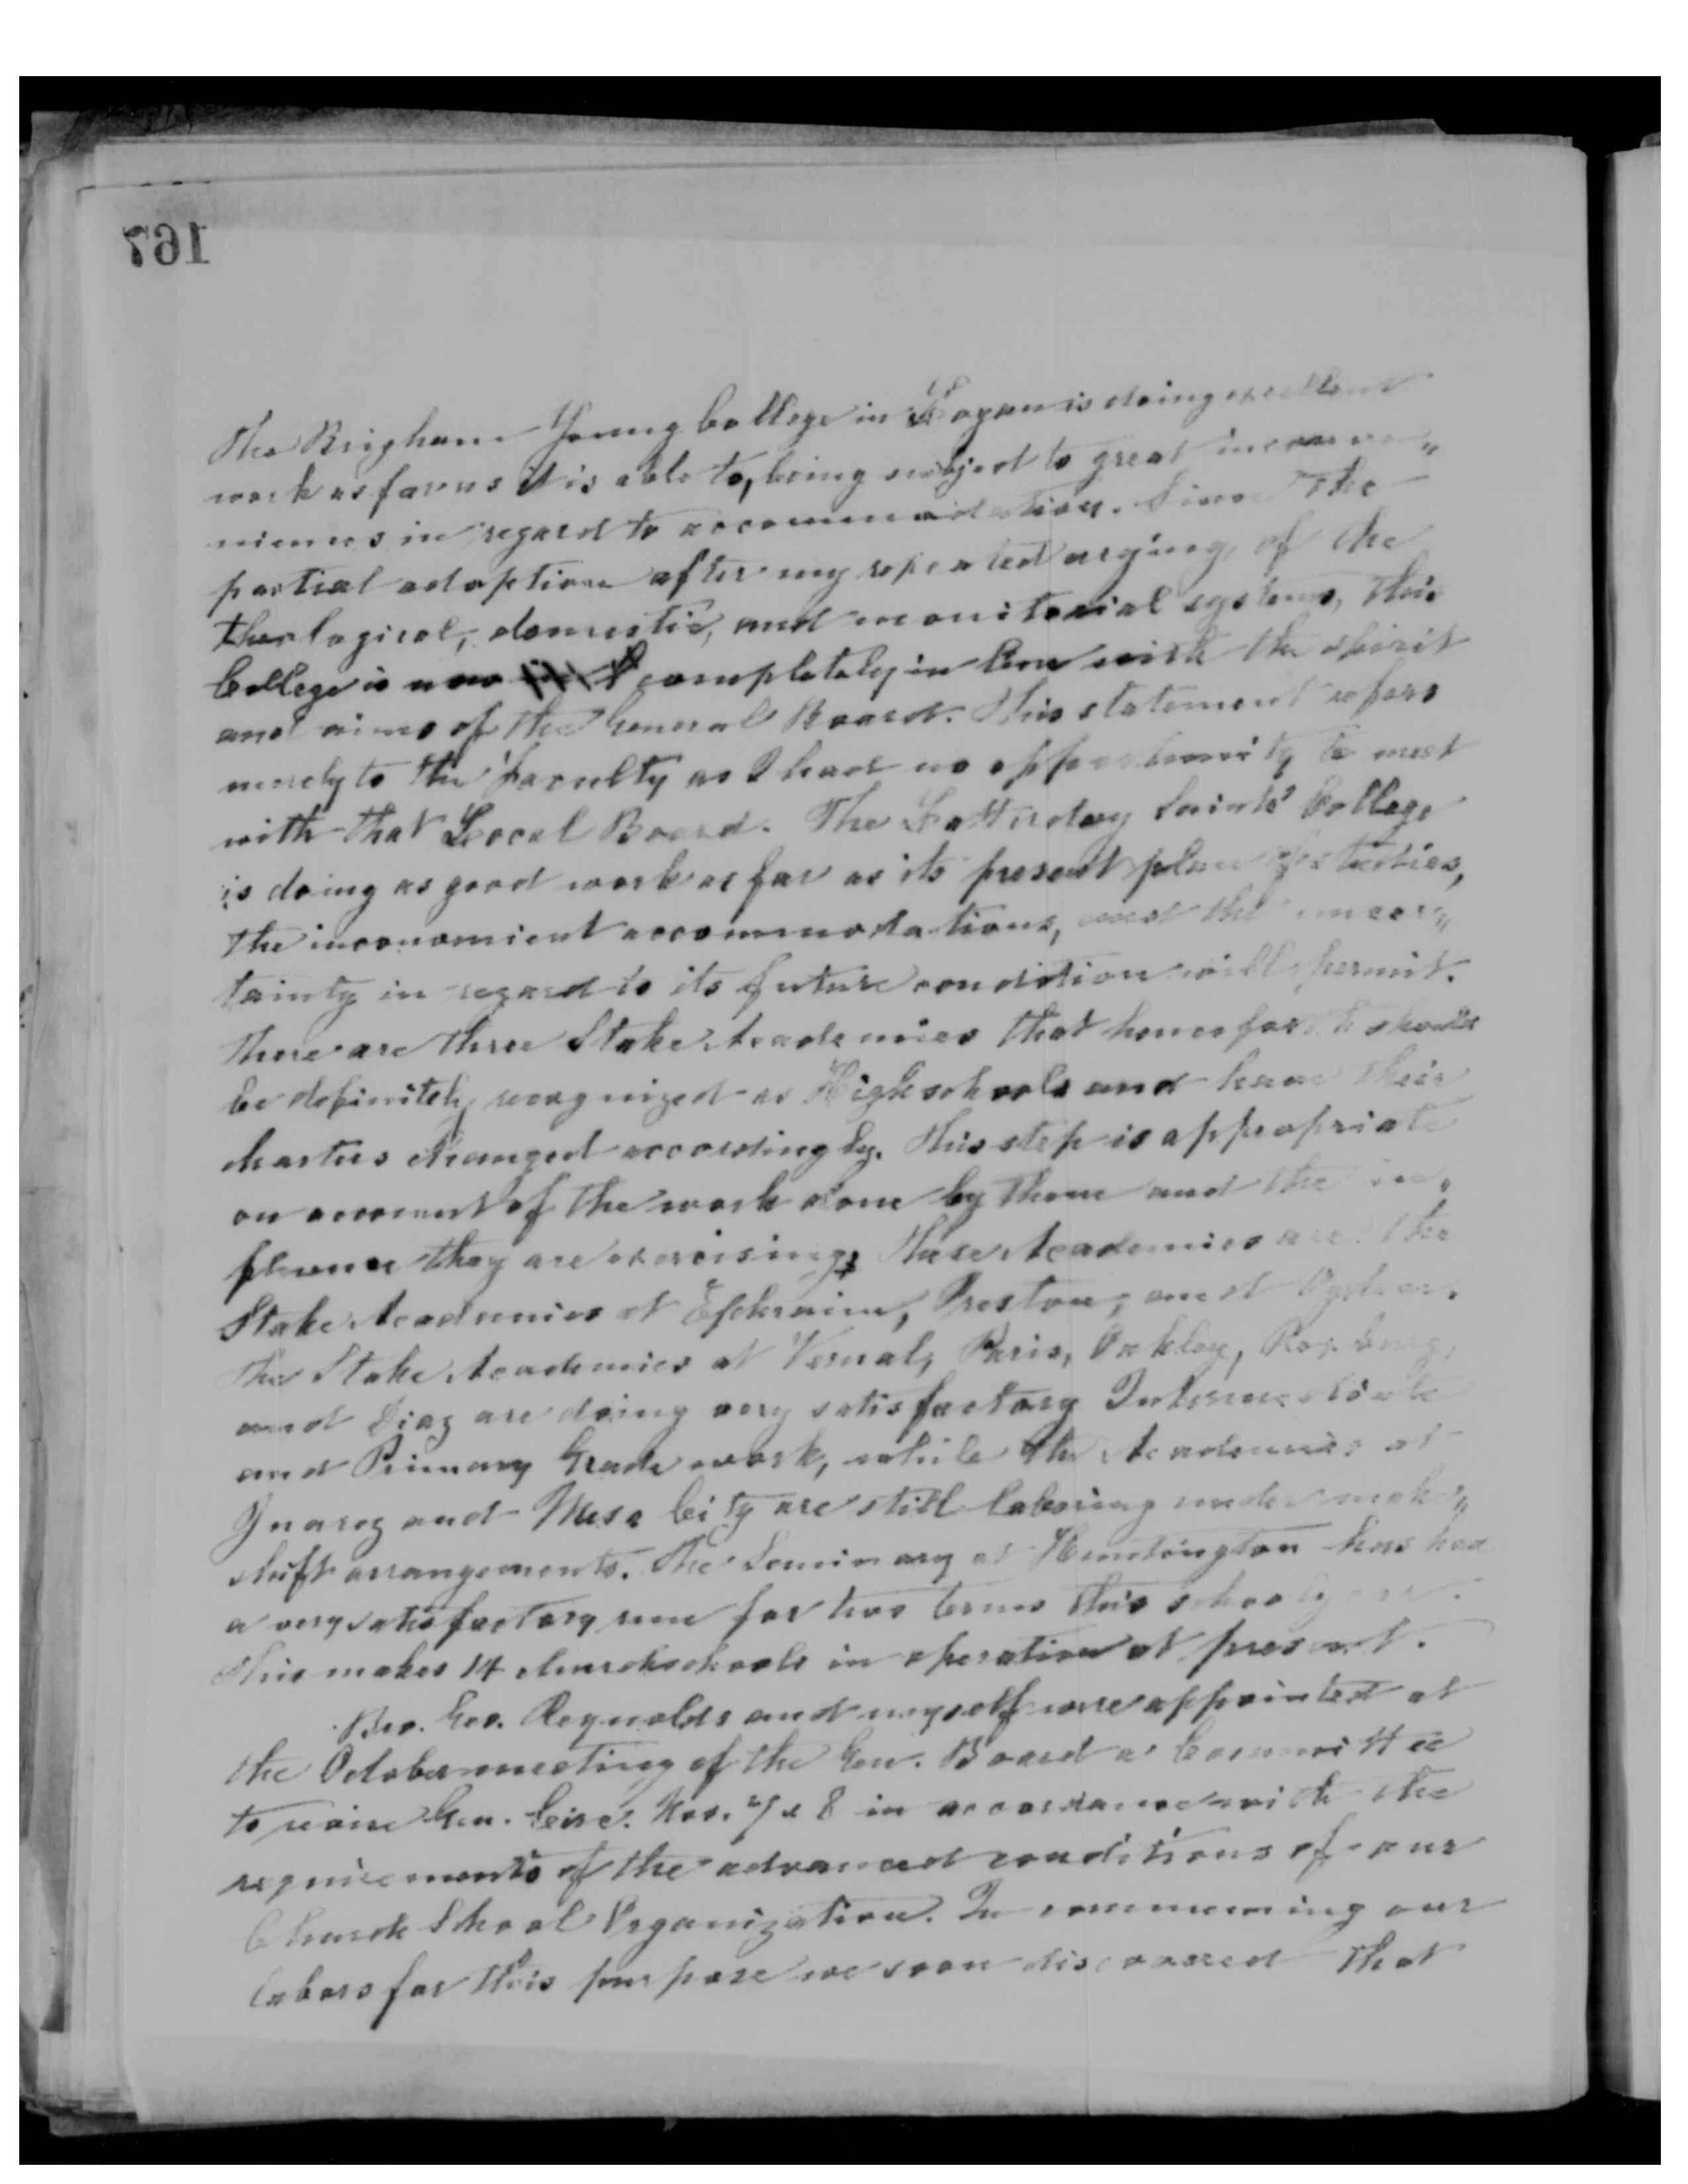 167
The Brigham Young College in Logan is doing excellent
work as far as it is able to, being subject to great inconve„
niences in regard to accommodation. Since the
partial adoption after my repeated urging, of the
theological, domestic, and monitorial systems, this
College is now completely in line with the spirit
and aims of the General Board. This statement refers
merely to the Faculty as I had no opportunity to meet
with that Local Board. The Latterday Saints' College
is doing as good work as far as its present plan of studies,
the inconvenient accommodations, and the uncer„
tainty in regard to its future condition will permit.
There are three Stake Academies that henceforth should
be definitely recognized as Highschools and have their
charters changed accordingly. This step is appropriate
on account of the work done by them and the in„
fluence they are exercising. These Academies are the
Stake Academies at Ephraim, Preston, and Ogden.
The Stake Academies at Vernal, Paris, Oakley, Rexburg,
and Diaz are doing very satisfactory Intermediate
and Primary Grade work, while the Academies at
Juarez and Mesa City are still laboring under make„
shift arrangements. The Seminary at Huntington has had
a very satisfactory run for two terms this schoolyear.
This makes 14 Churchschools in operation at present.
Bro. Geo. Reynolds and myself were appointed at
the October meeting of the Gen. Board a Committee
to revise Gen. Circ. Nos. 7 & 8 in accordance with the
requirements of the advanced conditions of our
Church School Organization. In commencing our
labors for this purpose we soon discovered that